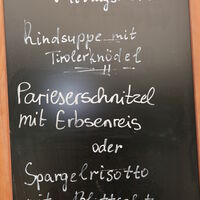 Rindsuppe mit
Tirolerknödel
Parieserschnitzel
mit Erbsenreis
oder
Spargelrisotto